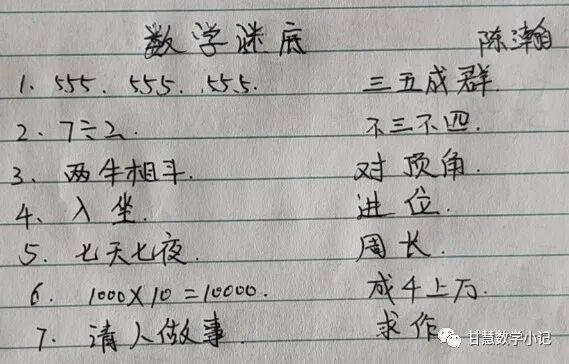 数学谜底 陈瀚
1. 555. 555. 555. 三五成群.
2. 7÷2. 不三不四.
3. 两牛相斗. 对顶角.
4. 入坐. 进位.
5. 七天七夜. 周长.
6. 1000×10=10000. 成千上万.
7. 请人做事 求作
甘慧数学小记